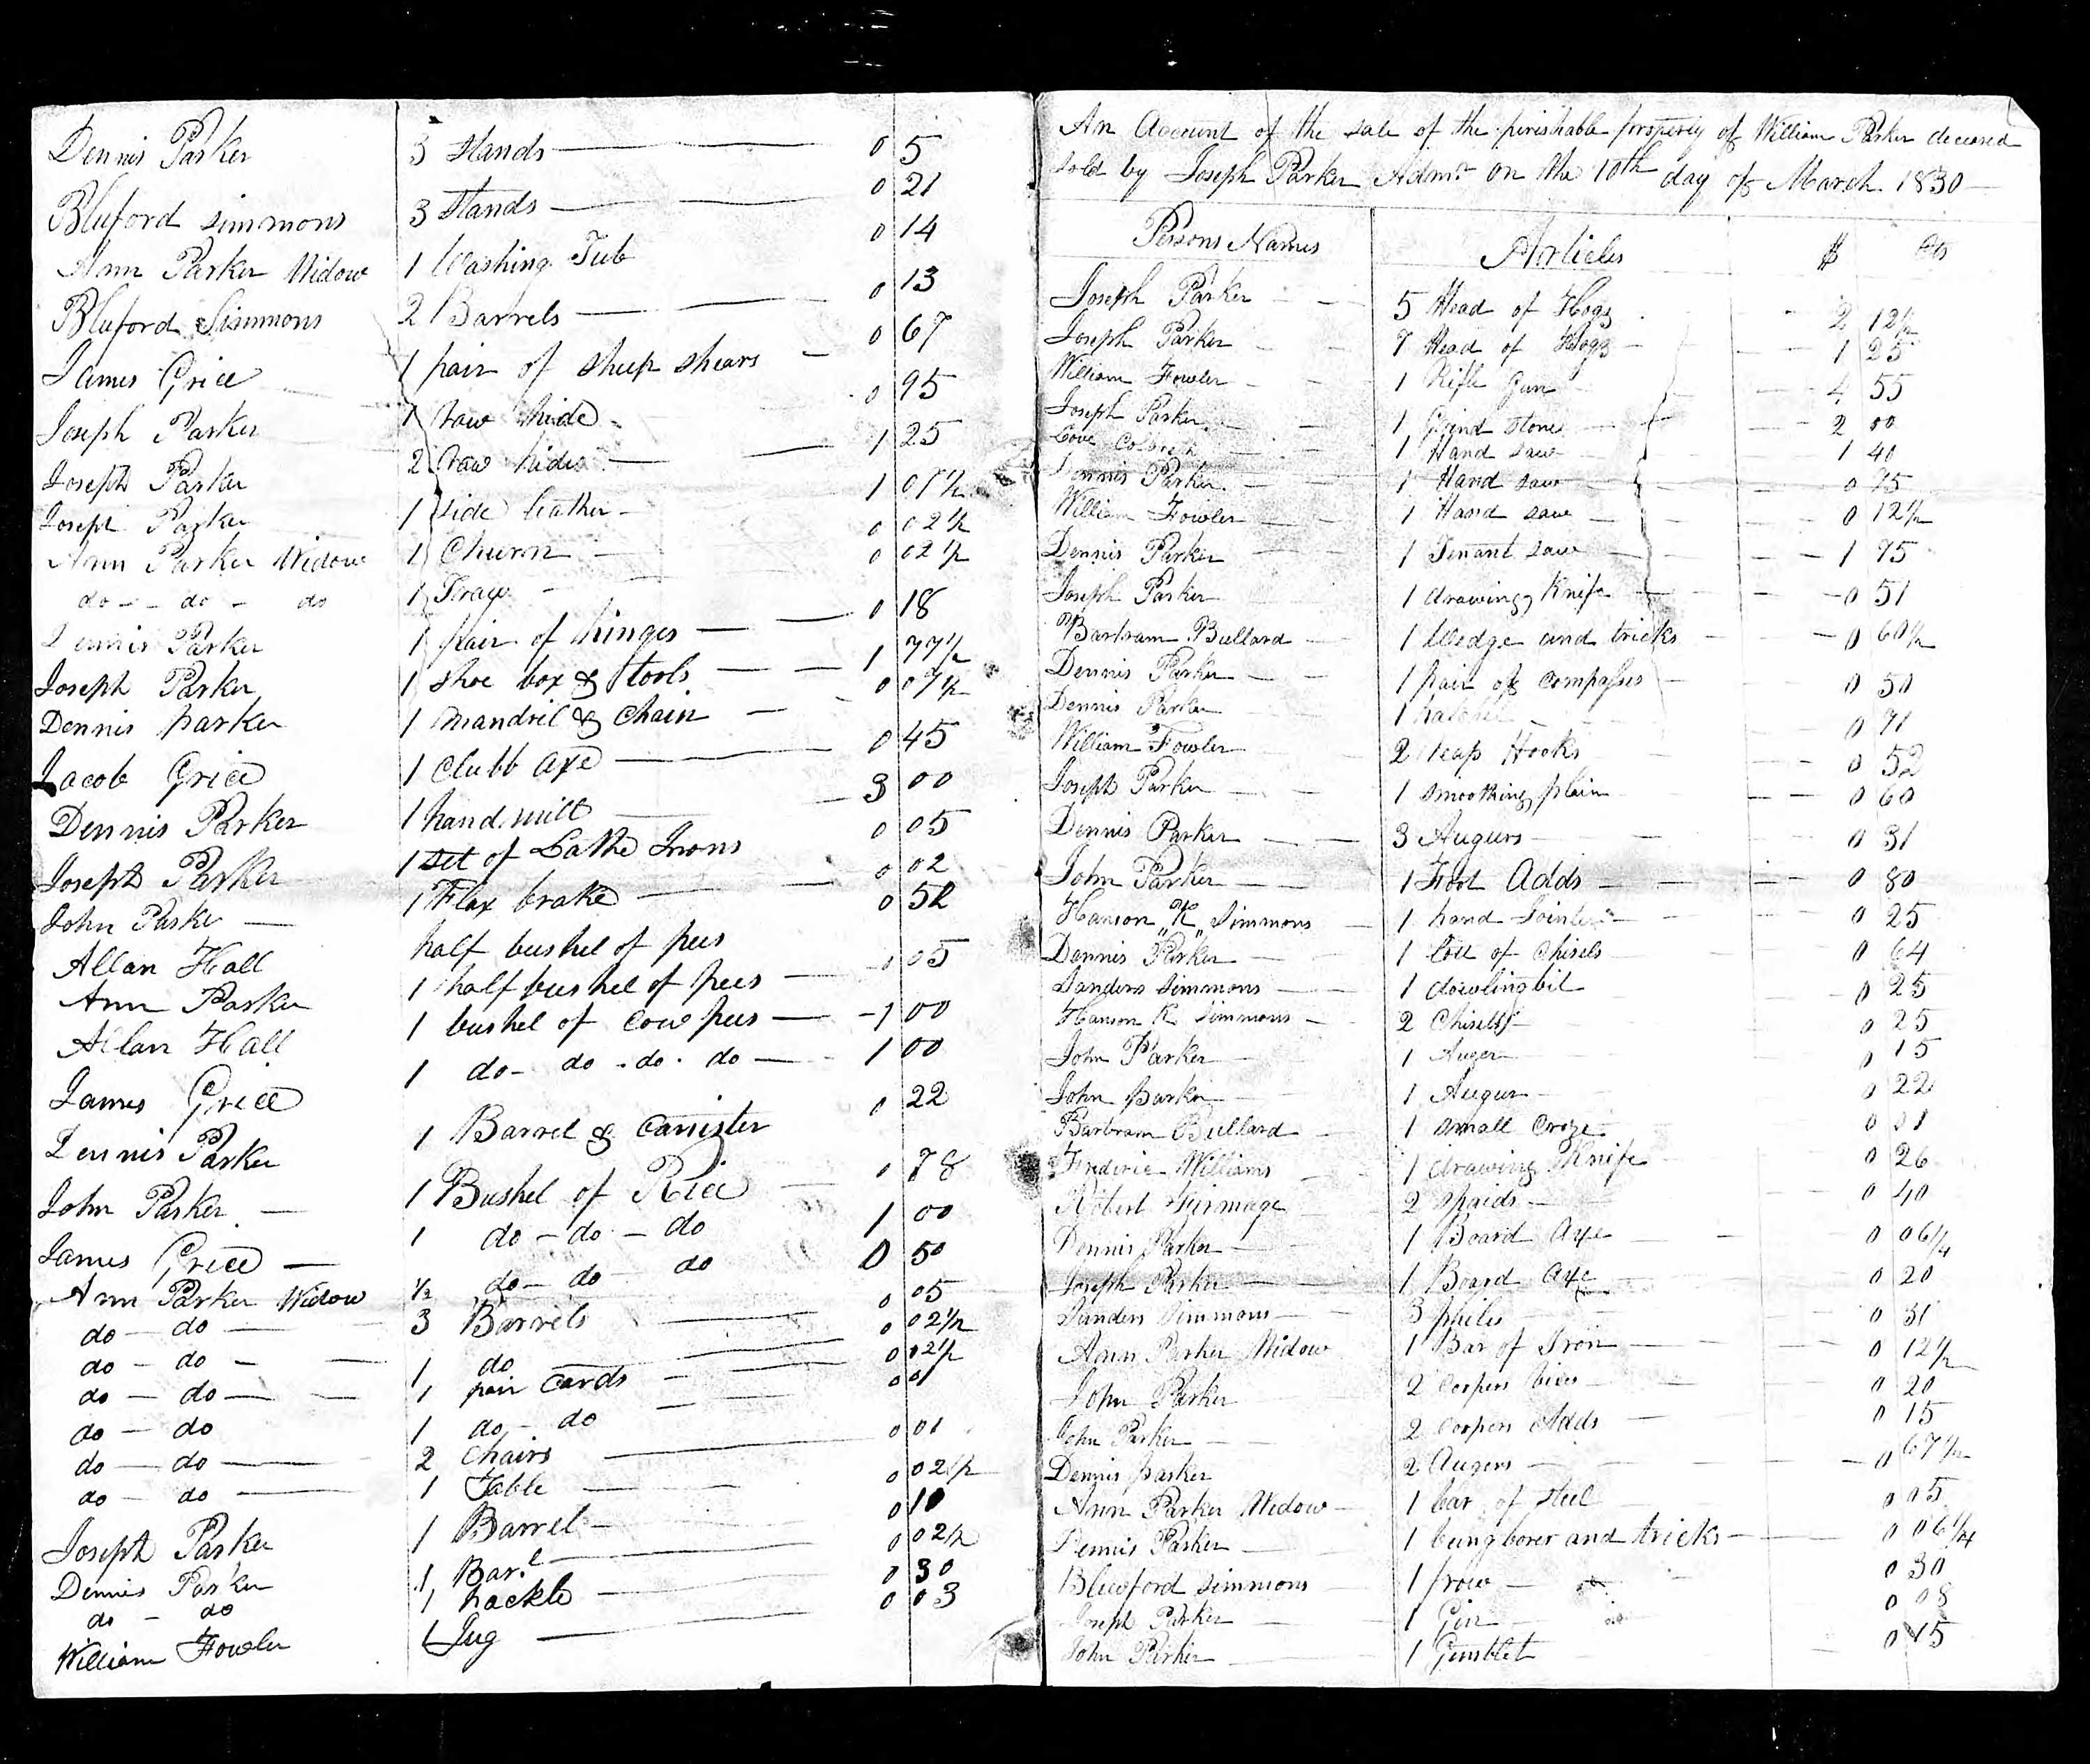 Dennis Parker 3 Stands 0 5
Bluford Simmons 3 Stands 0 21
Ann Parker Widow 1 Washing Tub 0 14
Bluford Simmons 2 Barrels 0 13
James Grice 1 pair of sheep shears 0 67
Joseph Parker 1 raw hide 0 95
Joseph Parker 2 raw hides 1 25
Joseph Parker 1 side leather 1 07½
Ann Parker Widow 1 Churn 0 02½
do do do 1 0 02½
Dennis Parker 1 pair of hinges 0 18
Joseph Parker 1 shoe box & tools 1 77½
Dennis parker 1 mandril & Chain 0 07½
Jacob Grice 1 Clubb axe 0 45
Dennis Parker 1 hand mill 3 00
Joseph Parker 1 set of Lathe Irons 0 05
John Parker 1 Flax brake 0 02
Allan Hall half bushel of pees 0 52
Ann Parker 1 half bushel of pees 0 05
Allan Hall 1 bushel of Cow pees 1 00
James Grice 1 do do do do 1 00
Dennis Parker 1 Barrel & Cannister 0 22
John Parker 1 Bushel of Rice 0 78
James Grice 1 do do do 1 00
Ann Parker Widow ½ do do do 0 50
do do 3 Barrels 0 05
do do 1 do 0 02½
do do 1 pair Cards 0 02½
do do 1 do do 0 01
do do 2 Chairs 0 01
do do 1 Table 0 02½
Joseph Parker 1 Barrel 0 10
Dennis Parker 1 Barl 0 02½
do do 1 hackle 0 30
William Fowler 1 Jug 0 03
An Account of the sale of the perishable property of William Parker deceased
sold by Joseph Parker Admr on the 10th day of March 1830
Persons Names Articles $ Cts
Joseph Parker 5 Head of Hogs 2 12½
Joseph Parker 7 Head of Hogs 1 25
William Fowler 1 Rifle Gun 4 55
Joseph Parker 1 Grind stone 2 00
Love 1 Hand saw 1 40
Dennis Parker 1 Hand saw 0 75
William Fowler 1 Hand saw 0 12½
Dennis Parker 1 Tenant saw 1 75
Joseph Parker 1 drawing Knife 0 51
Bartram Bullard 1 Wedge and tricks 0 60½
Dennis Parker 1 pair of Compasses 0 50
Dennis Parker 1 hatchet 0 71
William Fowler 2 reap Hooks 0 52
Joseph Parker 1 smoothing plain 0 60
Dennis Parker 3 Augurs 0 31
John Parker 1 Foot Adds 0 80
Hanson "K" Simmons 1 hand Jointer 0 25
Dennis Parker 1 lott of Chisels 0 64
Sanders Simmons 1 dowling bit 0 25
Hanson K Simmons 2 Chisells 0 25
John Parker 1 Auger 0 15
John parker 1 Augur 0 22
Bartram Bullard 1 small Croze 0 01
Frederic Williams 1 drawing Knife 0 26
Robert 2 Spaids 0 40
Dennis Parker 1 Board Axe 0 06¼
Joseph Parker 1 Board Axe 0 20
Sanders Simmons 3 philes 0 31
Ann Parker Widow 1 Bar of Iron 0 12½
John Parker 2 Coopers 0 20
John Parker 2 Coopers Adds 0 15
Dennis parker 2 Augers 0 67½
Ann Parker Widow 1 bar of steel 0 05
Dennis Parker 1 bung borer and tricks 0 06¼
Bluoford Simmons 1 frow 0 30
Joseph Parker 1 Gin 0 08
John Parker 1 Gimblet 0 15